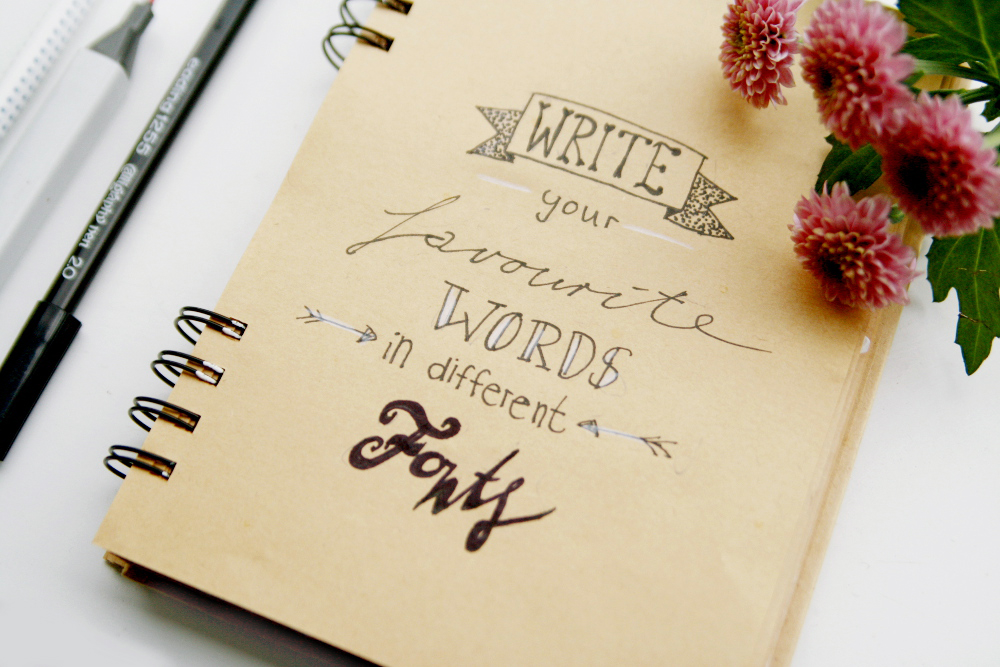 WRITE
your
favourite
WORDS
in different
Fonts
edding 1255 calligraphy pen 2.0